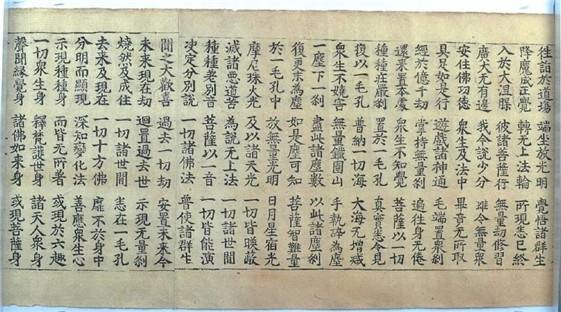 往詣於道場 端坐放光明 覺悟諸群生
降魔成正覺 轉无上法輪 所現悉已終
入於大涅槃 彼諸菩薩行 無量劫修習
廣大无有邊 我今說少分 雖令無量衆
安住佛功德 衆生及法中 畢竟无所取
具足如是行 遊戲諸神通 毛端置衆刹
經於億千劫 掌持無量刹 遍往身无倦
還來置本處 衆生不知覺 菩薩以一切
種種莊嚴刹 置於一毛孔 真實悉令見
復以一毛孔 普納一切海 大海无增減
衆生不嬈害 無量鐵圍山 手執碎為塵
一塵下一刹 盡此諸塵數 以此諸塵刹
復更末為塵 如是塵可知 菩薩智難量
於一毛孔中 放無量光明 日月星宿光
摩尼珠火光 及以諸天光 一切皆暎蔽
滅諸惡道苦 為說无上法 一切諸世間
種種差別音 菩薩以一音 一切皆能演
決定分別說 一切諸佛法 普使諸群生
聞之大歡喜 過去一切劫 安置未來今
未來現在劫 迴置過去世 示現无量刹
燒然及成住 一切諸世間 悉在一毛孔
去來及現在 一切十方佛 靡不於身中
分明而顯現 深知變化法 善應衆生心
示現種種身 而皆无所著 或現於六趣
一切衆生身 釋梵護世身 諸天人衆身
聲聞緣覺身 諸佛如來身 或現菩薩身